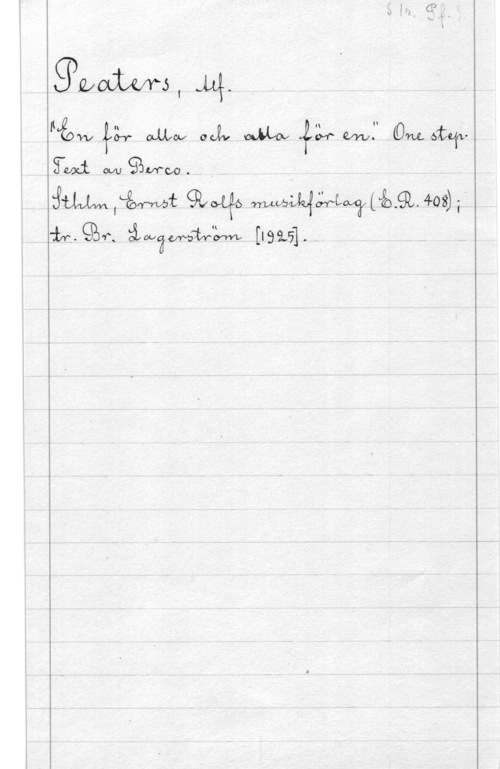 S 1 h. Pf.
Peaters, Alf.
"En för alla och alla för en." One step.
Text av Berco.
Sthlm, Ernst Rolfs musikförlag (E.R. 408);
tr. Br. Lagerström [1925].